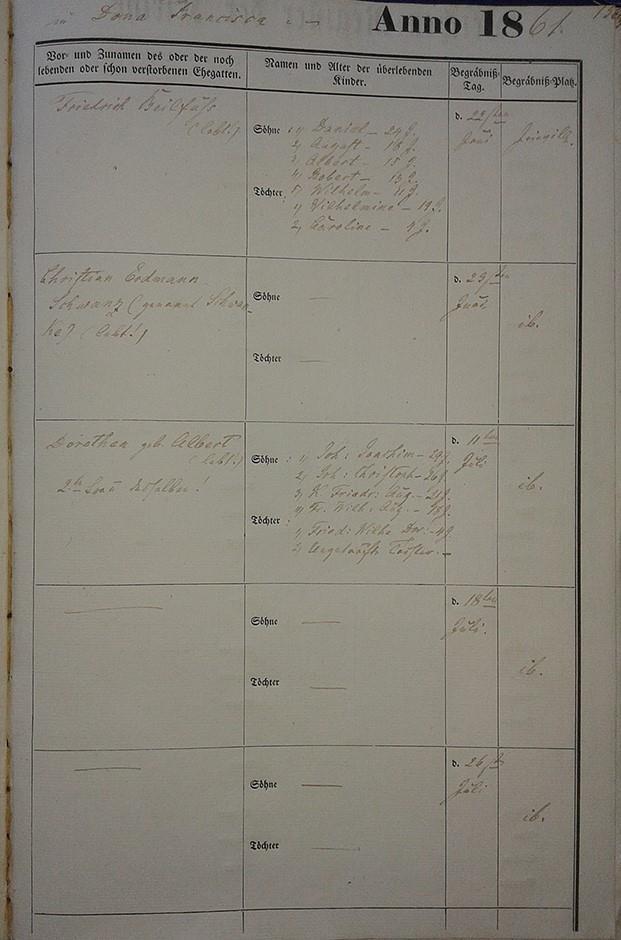 in Dona Francisca
Anno 1861
Vor- und Zunamen des oder der noch
lebenden oder schon verstorbenen Ehegatten.
Namen und Alter der überlebenden
Kinder.
Begräbniß-
Tag.
Begräbniß-Platz.
Friedrich Beilfuß
(lebt!)
Söhne: 1, Daniel – 24 J.
2, August – 18 J.
3, Albert – 15 J.
4, Robert – 13 J.
5, Wilhelm – 11 J.
Töchter:
1, Wilhelmine – J.
2, Caroline – J.
d.
Juni
Joinville.
Christian Erdmann
Schwanz (genannt Schwan-
ke) (lebt!)
Söhne —
Töchter —
d. 29sten
Juni
ib.
Dorothea geb. Albert
(lebt!)
2te Frau desselben!
Söhne: 1, Joh: Joachim – J.
2, Joh: Christoph – J.
3, K. Friedr: Aug. – J.
4, Fr. Wilh. Aug. – 18 J.
Töchter:
1, Fried: Wilhe Dor: – J.
2, Ungetaufte Tochter. –
d. 11ten
Juli
ib.
—
Söhne —
Töchter —
d. 18ten
Juli.
ib.
—
Söhne —
Töchter —
d. 26sten
Juli
ib.